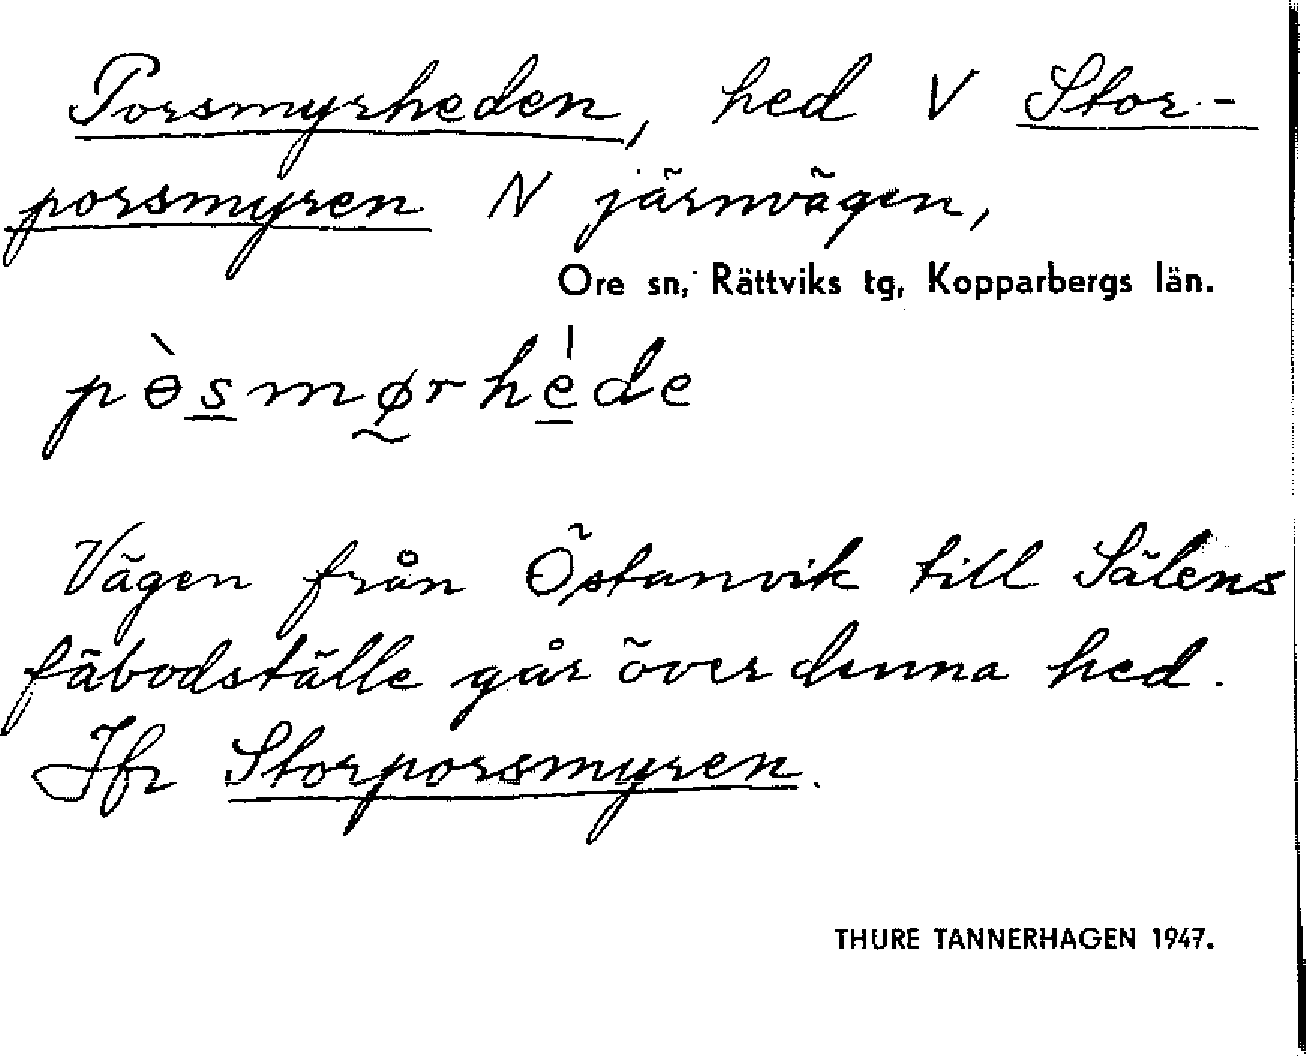 Porsmyrheden, hed V Stor-
porsmyren N järnvägen,
Ore sn, Rättviks tg, Kopparbergs län.
pɵ̀smørhe̍de
Vägen från Östanvik till Sälens
fäbodställe går över denna hed.
Jfr Storporsmyren.
THURE TANNERHAGEN 1947.